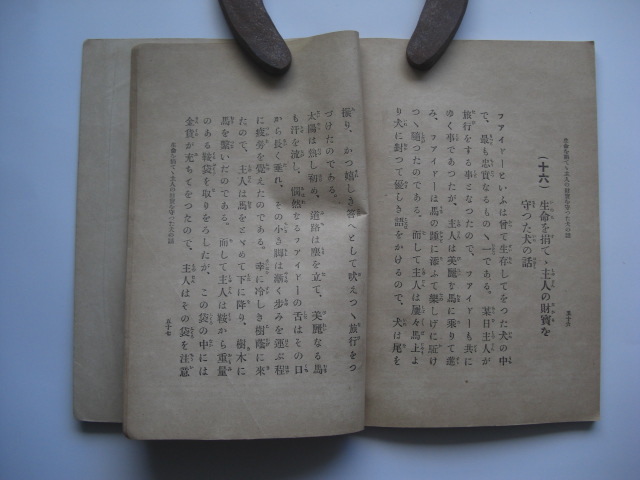 生命を捨てゝ主人の財寶を守つた犬の話
五十六
(十六) 生命を捨てゝ主人の財寶を
守つた犬の話
フアイドーといふは曾て生存してをつた犬の中
で、最も忠實なるもの丶一である。某日主人が
旅行をする事となつたので、フアイドーも共に
ゆく事であつたが、主人は美麗な馬に乘りて進
み、フアイドーは馬の踵に添ふて樂しげに駈け
つゝ隨つたのである。而して主人は屢々馬上よ
り犬に對つて優しき語をかけるので、犬は尾を
振り、かつ嬉しき答へとして吠えつゝ旅行をつ
づけたのである。
太陽は熱し初め、道路は塵を立て、美麗なる馬
も汗を流し、憫然なるフアイドーの舌はその口
から長く垂れ、その小さき脚は漸く歩みを運ぶ程
に疲勞を覺えたのである。幸に冷しき樹蔭に來
たので、主人は馬をとゞめて下に降り、樹木に
馬を繫いだのである。而して主人は鞍から重量
のある鞍袋を取りをろしたが、この袋の中には
金貨が充ちてをつたので、主人はその袋を注意
生命を捨てゝ主人の財寶を守つた犬の話
五十七